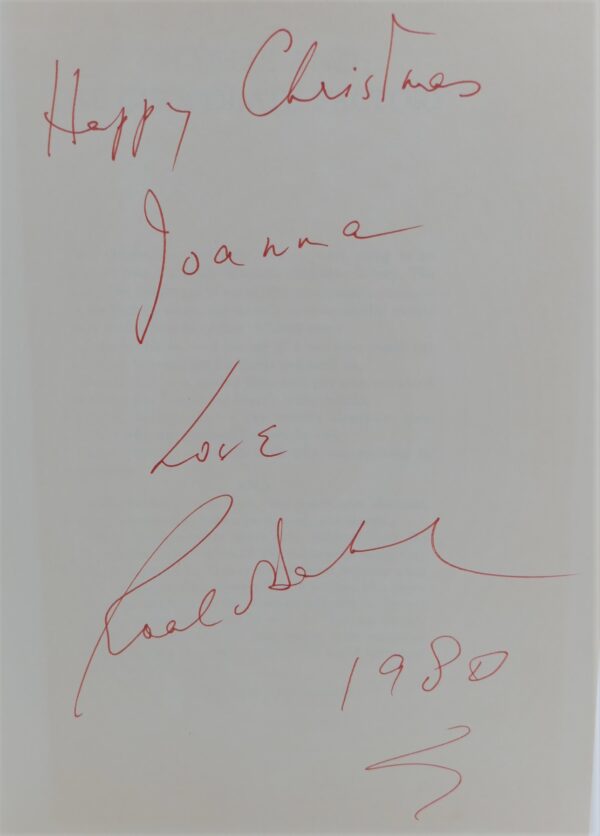 Happy Christmas
Joanna
Love
Roald Dahl
1980